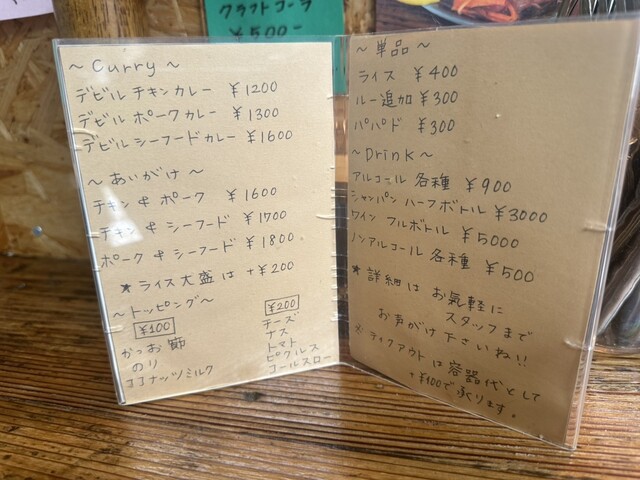 クラフトコーラ
¥500-
～Curry～
デビルチキンカレー ¥1200
デビルポークカレー ¥1300
デビルシーフードカレー ¥1600
～あいがけ～
チキン & ポーク ¥1600
チキン & シーフード ¥1700
ポーク & シーフード ¥1800
★ライス大盛は +¥200
～トッピング～
¥100
かつお節
のり
ココナッツミルク
¥200
チーズ
ナス
トマト
ピクルス
コールスロー
～単品～
ライス ¥400
ルー追加 ¥300
パパド ¥300
～Drink～
アルコール各種 ¥900
シャンパン ハーフボトル ¥3000
ワイン フルボトル ¥5000
ノンアルコール各種 ¥500
★詳細は お気軽に
スタッフまで
お声がけ下さいね!!
※テイクアウトは容器代として
+¥100で承ります。